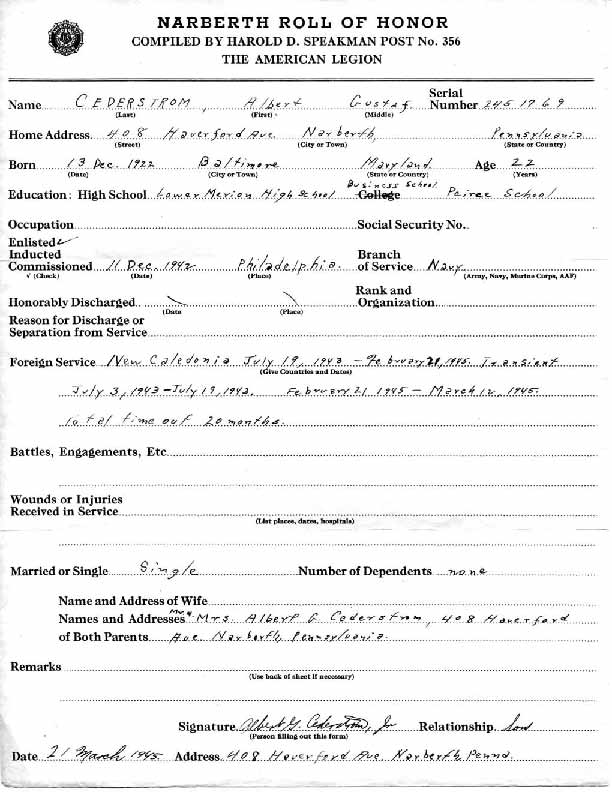 NARBERTH ROLL OF HONOR
COMPILED BY HAROLD D. SPEAKMAN POST No. 356
THE AMERICAN LEGION
Name CEDERSTROM, Albert Gustaf. Serial Number 245 17 69
(Last) (First) (Middle)
Home Address 408 Haverford Ave Narberth, Pennsylvania
(Street) (City or Town) (State or Country)
Born 13 Dec. 1922 Baltimore Maryland Age 22
(Date) (City or Town) (State or Country) (Years)
Education: High School Lower Merion High School Business School College Peirce School
Occupation Social Security No.
Enlisted ✓
Inducted
Commissioned 11 Dec. 1942 Philadelphia. Branch of Service Navy
√ (Check) (Date) (Place) (Army, Navy, Marine Corps, AAF)
Honorably Discharged \ \ Rank and Organization
(Date (Place)
Reason for Discharge or
Separation from Service
Foreign Service New Caledonia July 19, 1943 - February 21, 1945. Transient
(Give Countries and Dates)
July 3, 1943 - July 19, 1943. February 21 1945 - March 12, 1945.
Total time out 20 months.
Battles, Engagements, Etc
Wounds or Injuries
Received in Service
(List places, dates, hospitals)
Married or Single Single Number of Dependents none
Name and Address of Wife
Names and Addresses Mr + Mrs Albert G Cederstrom, 408 Haverford
of Both Parents Ave Narberth, Pennsylvania.
Remarks
(Use back of sheet if necessary)
Signature Albert G. Cederstrom, Jr Relationship Son
(Person filling out this form)
Date 21 March 1945 Address 408 Haverford Ave Narberth, Penna.